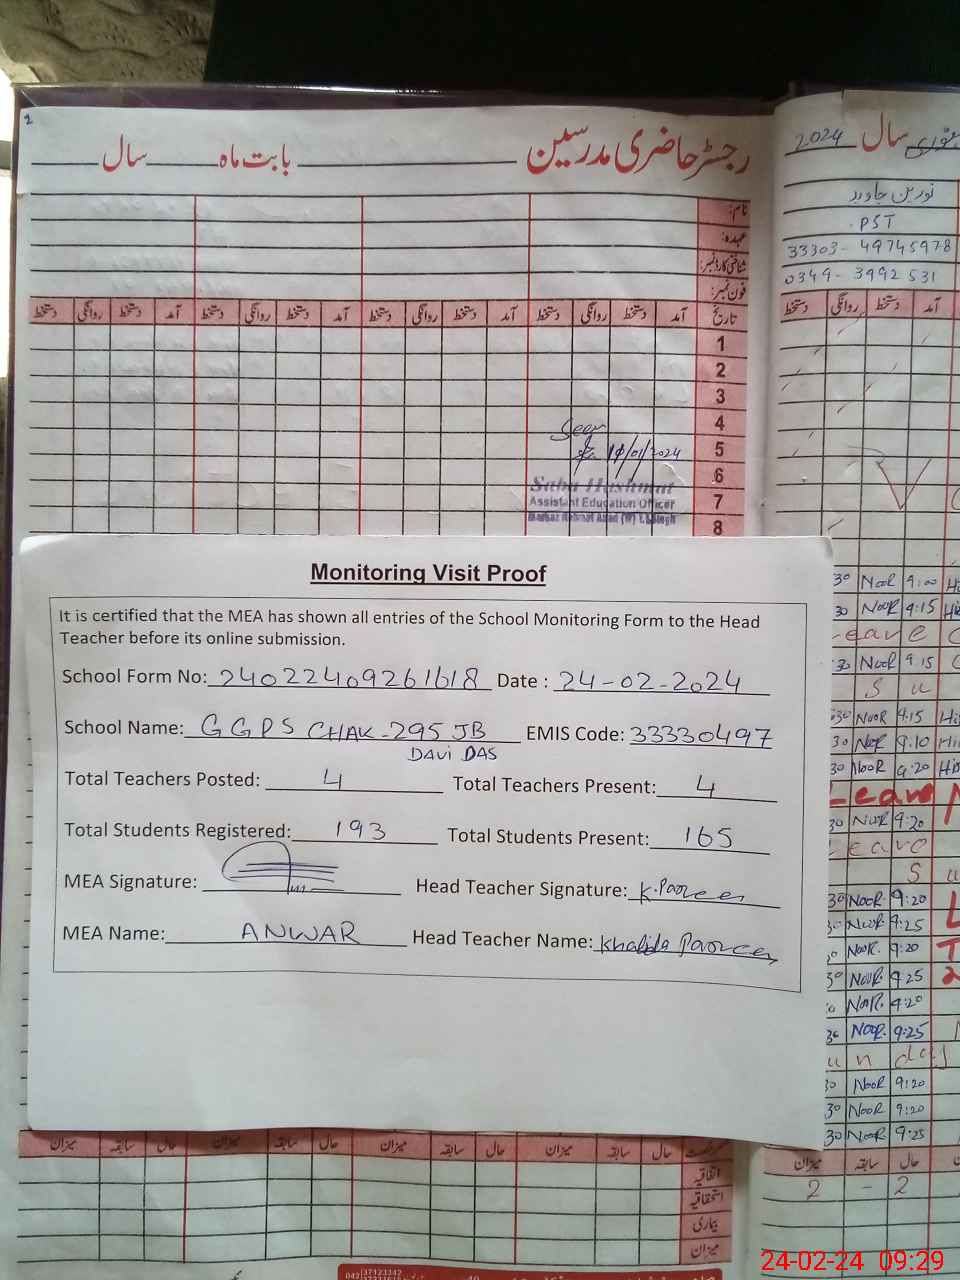 2
رجسٹر حاضری مدرسین بابت ماہ سال
نام:
عہدہ:
شناختی کارڈ نمبر:
فون نمبر:
تاریخ آمد دستخط روانگی دستخط آمد دستخط روانگی دستخط آمد دستخط روانگی دستخط آمد دستخط روانگی دستخط
1
2
3
4
5
6
7
8
Seen
19/01/2024
Saba Hashmat
Assistant Education Officer
سال 2024
نورین جاوید
PST
33303-49745978
0349-3992531
آمد دستخط روانگی دستخط
Monitoring Visit Proof
It is certified that the MEA has shown all entries of the School Monitoring Form to the Head
Teacher before its online submission.
School Form No: 24022409261618 Date : 24-02-2024
School Name: GGPS CHAK-295 JB EMIS Code: 33330497
DAVI DAS
Total Teachers Posted: 4 Total Teachers Present: 4
Total Students Registered: 193 Total Students Present: 165
MEA Signature: Head Teacher Signature: K.Parveen
MEA Name: ANWAR Head Teacher Name: Khalida Parveen
30 NooR 9:00
30 NooR 9:15
Leave
30 NooR 9.15
S u
30 NooR 9.15
30 NooR 9.10
30 NooR 9.20
Leave
30 NooR 9:20
Leave
S u
30 NooR. 9:20
30 NooR 9:25
NooR. 9:20
30 NooR. 9:25
NooR. 9:20
30 NooR. 9:25
un day
30 NooR 9:20
30 NooR 9:20
30 NooR 9:25
حال سابقہ میزان حال سابقہ میزان حال سابقہ میزان حال سابقہ میزان
اتفاقیہ
استحقاقیہ
بیماری
میزان
حال سابقہ میزان
2 - 2
042 37123342
24-02-24 09:29